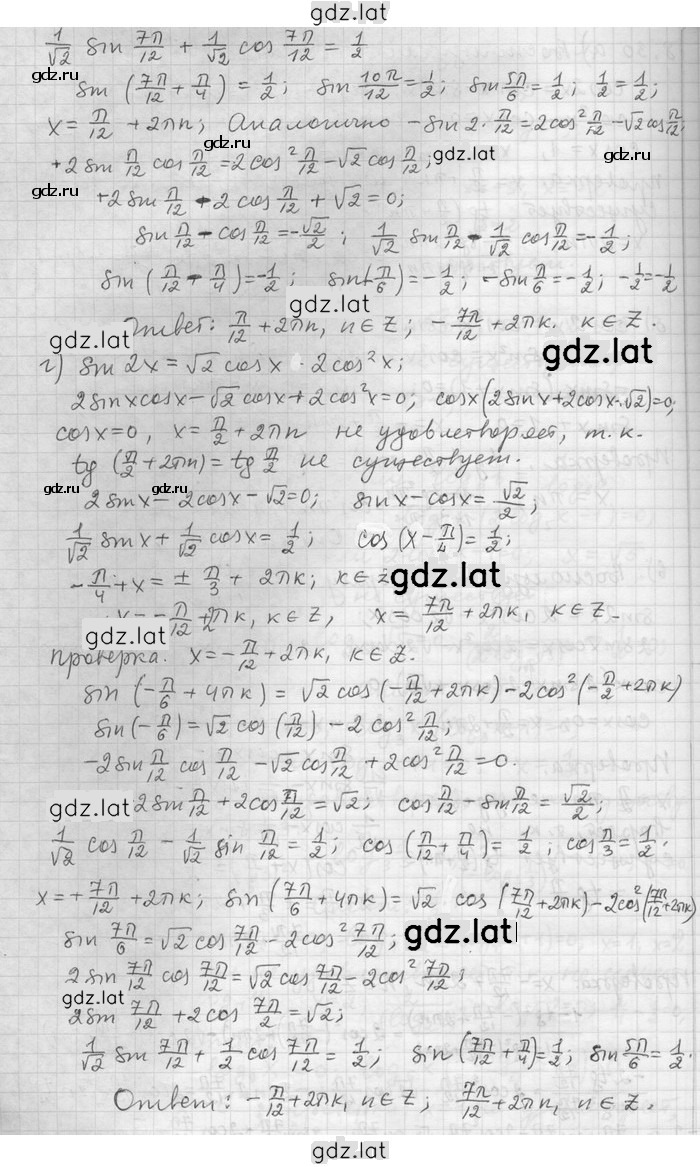 gdz.lat
1/√2 sin 7π/12 + 1/√2 cos 7π/12 = 1/2
gdz.lat
sin (7π/12 + π/4) = 1/2; sin 10π/12 = 1/2; sin 5π/6 = 1/2; 1/2 = 1/2;
gdz.lat
x = π/12 + 2πn; Аналогично - sin 2·π/12 = 2cos² π/12 - √2 cos π/12;
gdz.lat
+2 sin π/12 cos π/12 = 2 cos² π/12 - √2 cos π/12;
gdz.lat
gdz.lat
+2 sin π/12 - 2 cos π/12 + √2 = 0;
sin π/12 - cos π/12 = -√2/2; 1/√2 sin π/12 - 1/√2 cos π/12 = -1/2;
sin (π/12 - π/4) = -1/2; sin(-π/6) = -1/2; -sin π/6 = -1/2; -1/2 = -1/2
gdz.lat
Ответ: π/12 + 2πn, n ∈ Z; -7π/12 + 2πк. к ∈ Z.
gdz.lat
gdz.lat
г) sin 2x = √2 cosx · 2cos²x;
2sinxcosx - √2 cosx + 2cos²x = 0; cosx(2sinx + 2cosx - √2) = 0;
cosx = 0, x = π/2 + 2πn не удовлетворяет, т.к.
tg (π/2 + 2πn) = tg π/2 не существует.
gdz.lat
2sinx - 2cosx - √2 = 0; sinx - cosx = √2/2;
1/√2 sinx + 1/√2 cosx = 1/2; cos (x - π/4) = 1/2;
-π/4 + x = ± π/3 + 2πк; к ∈ Z
gdz.lat
x = -π/12 + 2πк, к ∈ Z, x = 7π/12 + 2πк, к ∈ Z.
gdz.lat
Проверка. x = -π/12 + 2πк, к ∈ Z.
sin (-π/6 + 4πк) = √2 cos (-π/12 + 2πк) - 2cos² (-π/2 + 2πк)
sin (-π/6) = √2 cos (π/12) - 2 cos² π/12;
-2sin π/12 cos π/12 - √2 cos π/12 + 2cos² π/12 = 0.
gdz.lat
2sin π/12 + 2cos π/12 = √2; cos π/12 - sin π/12 = √2/2;
1/√2 cos π/12 - 1/√2 sin π/12 = 1/2; cos (π/12 + π/4) = 1/2; cos π/3 = 1/2.
x = + 7π/12 + 2πк; sin (7π/6 + 4πк) = √2 cos (7π/12 + 2πк) - 2cos² (7π/12 + 2πк)
sin 7π/6 = √2 cos 7π/12 - 2cos² 7π/12;
gdz.lat
2 sin 7π/12 cos 7π/12 = √2 cos 7π/12 - 2cos² 7π/12;
gdz.lat
2sin 7π/12 + 2 cos 7π/2 = √2;
1/√2 sin 7π/12 + 1/2 cos 7π/12 = 1/2; sin (7π/12 + π/4) = 1/2; sin 5π/6 = 1/2.
Ответ: -π/12 + 2πк, n ∈ Z; 7π/12 + 2πn, n ∈ Z.
gdz.lat